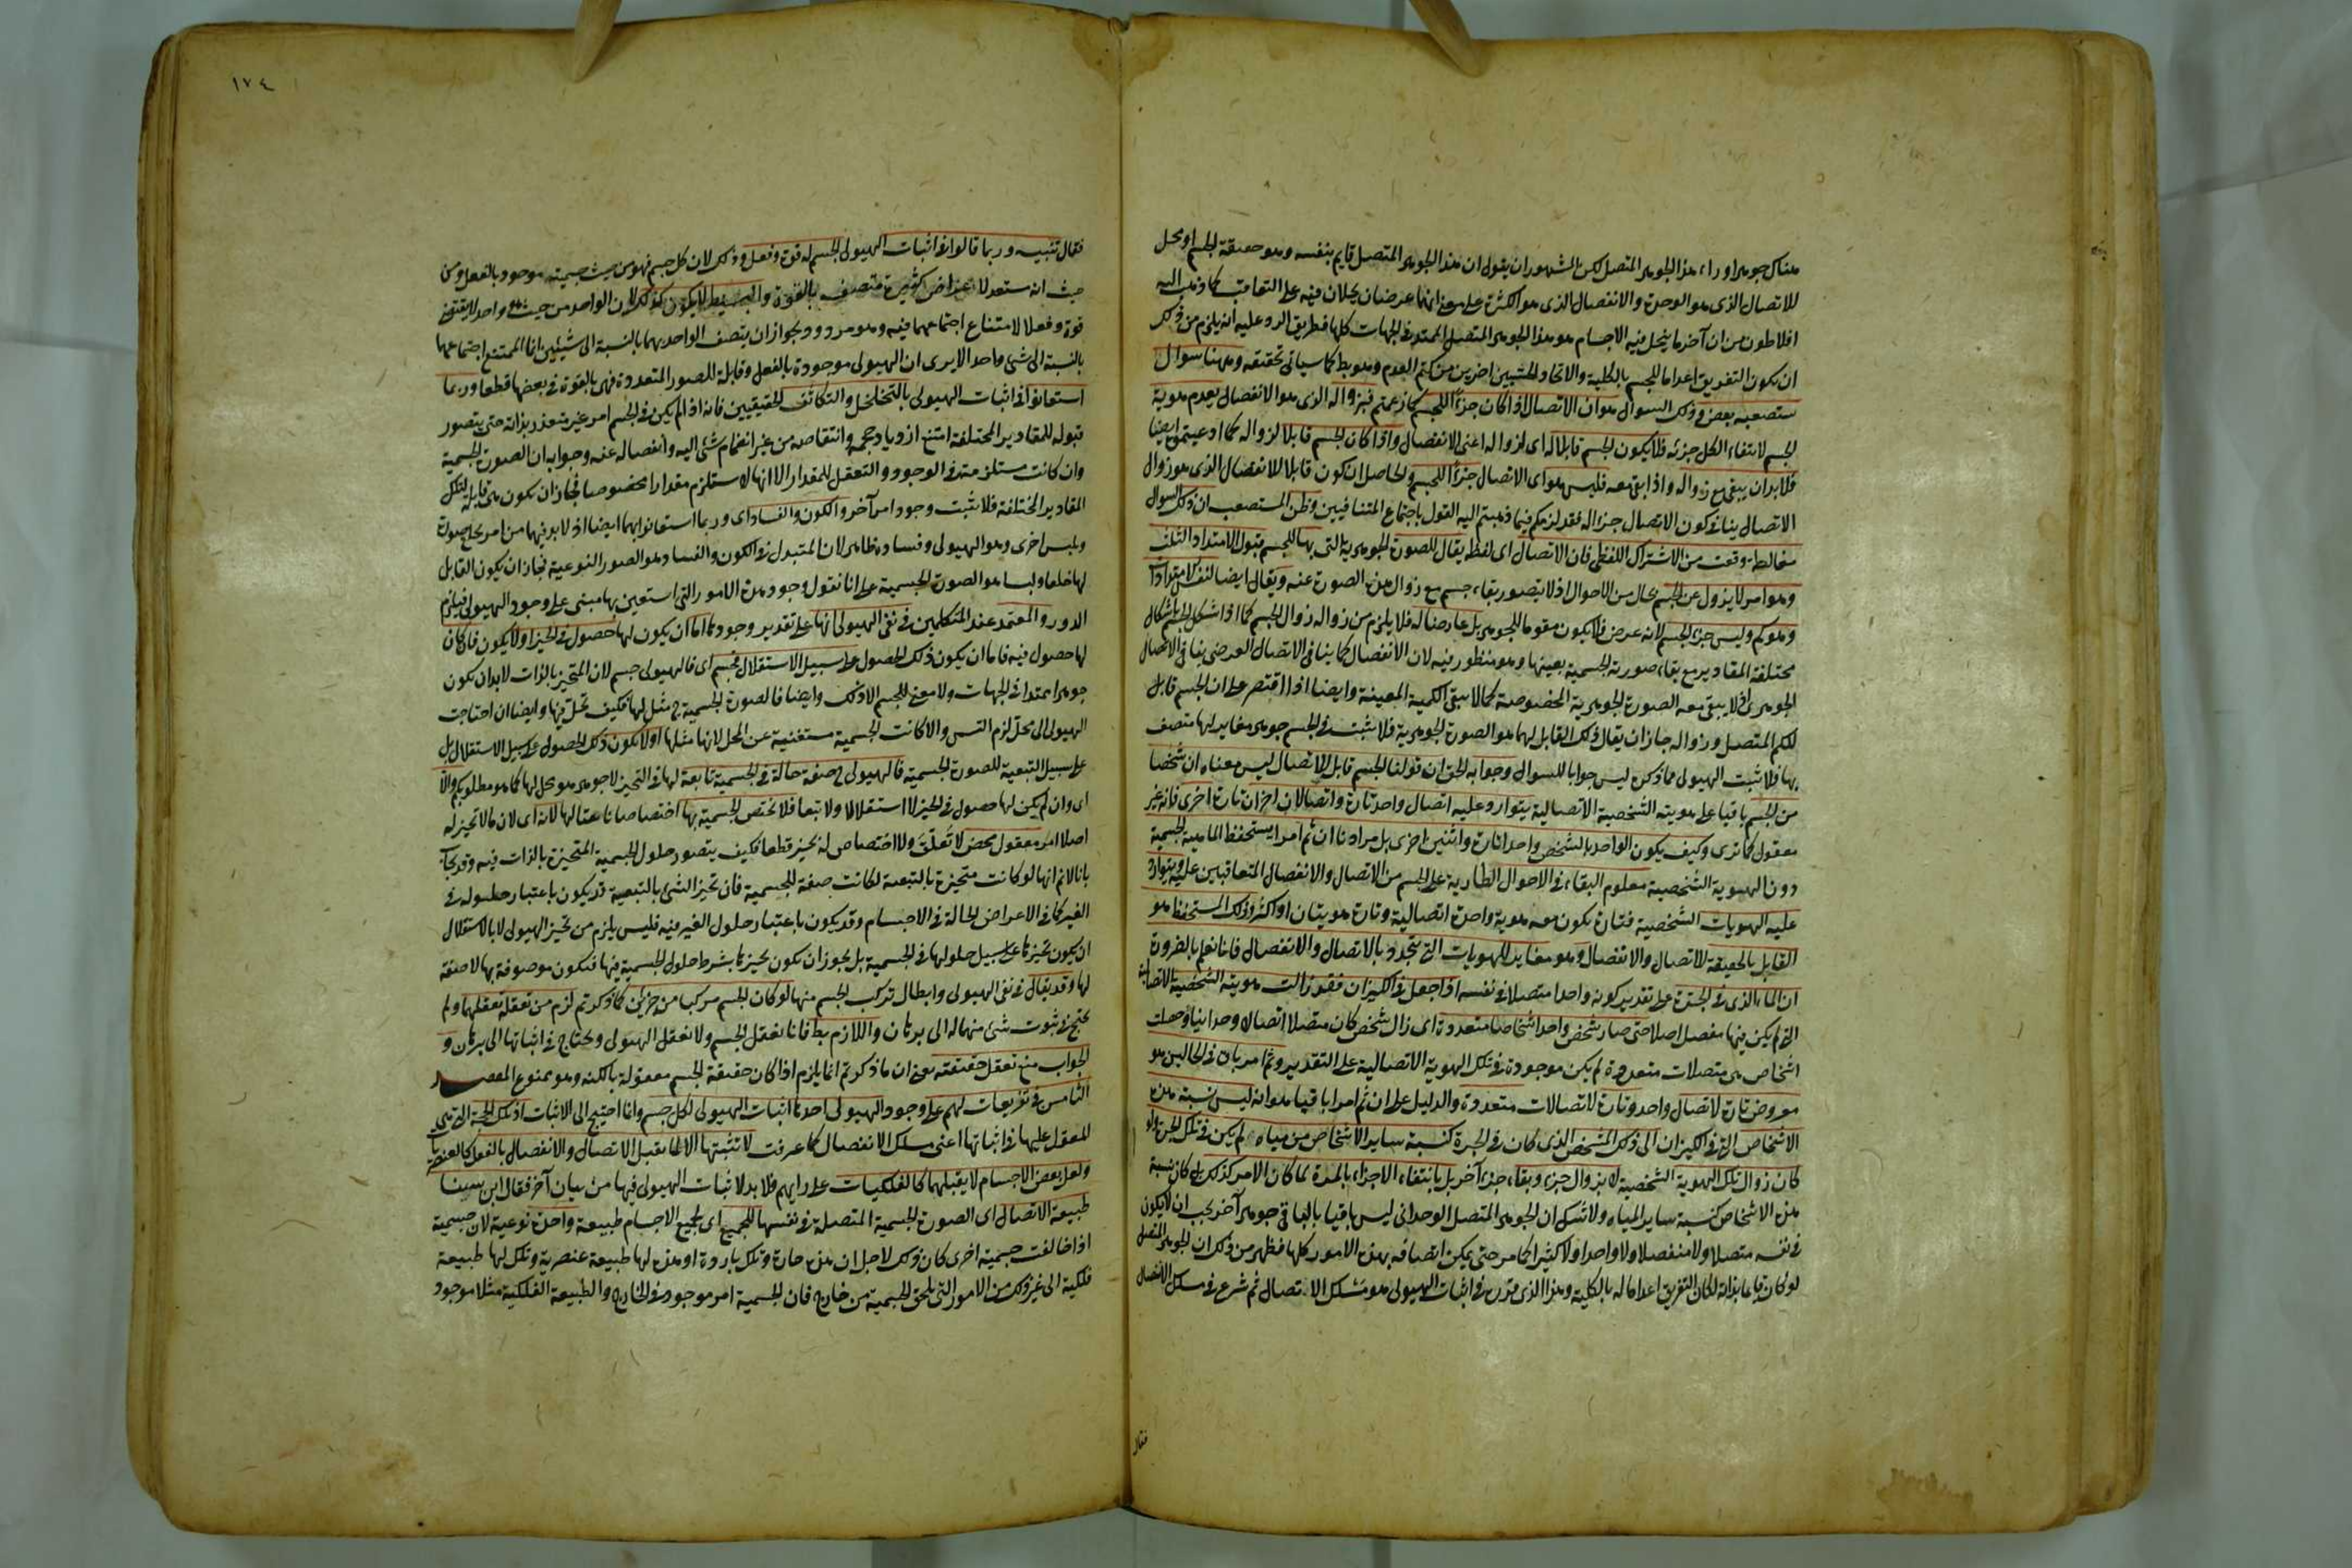 هناك جوهرا وراء هذا الجوهر المتصل لكن المشهور ان يقول ان هذا الجوهر المتصل قايم بنفسه وهو حقيقة الجسم او محل
للاتصال الذى هو الوحدة والانفصال الذى هو الكثرة على معنى انهما عرضان يحلان فيه على التعاقب كما ذهب اليه
افلاطون من ان آخر ما ينحل فيه الاجسام هو هذا الجوهر المتصل الممتد فى الجهات كلها فطريق الرد عليه انه يلزم من ذلك
ان يكون التفريق اعداما للجسم بالكلية والاتحاد لجسمين اخرين من كتم العدم وهو بط كما سيأتى تحقيقه وههنا سوال
يستصعبه بعض وذلك السوال هو ان الاتصال اذا كان جزءا للجسم كما زعمتم فبزواله الذى هو الانفصال يعدم هوية
الجسم لانتفاء الكل جزئه فلا يكون الجسم قابلا له اى لزواله اعنى الانفصال واذا كان الجسم قابلا لزواله كما ادعيتموه ايضا
فلا بد ان يبقى مع زواله واذا بقى معه فليس هو اى الاتصال جزءا للجسم والحاصل ان كون قابلا للانفصال الذى هو زوال
الاتصال ينافى كون الاتصال جزءا له فقد لزمكم فيما ذهبتم اليه القول باجتماع المتنافيين وظن المستصعب ان ذلك السوال
مغالطة وقعت من الاشتراك اللفظى فان الاتصال اى لفظه يقال للصورة الجوهرية التى بها للجسم قبول الامتداد الثلث
وهو امر لا يزول عن الجسم بحال من الاحوال اذ لا يتصور بقاء جسم مع زوال هذه الصورة عنه ويقال ايضا لنفس الامتدادات
وهو كم وليس جزء الجسم لانه عرض فلا يكون مقوما للجوهر بل عارضا له فلا يلزم من زواله زوال الجسم كما اذا شكل الجسم باشكال
مختلفة المقادير مع بقاء صورته الجسمية بعينها وهو منظور فيه لان الانفصال كما ينافى الاتصال العرضى ينافى الاتصال
الجوهرى اذ لا يبقى معه الصورة الجوهرية المخصوصة كما لا يبقى الكمية المعينة وايضا اذا اقتصر على ان الجسم قابل
للكم المتصل وزواله جاز ان يقال ذلك القابل لهما هو الصورة الجوهرية فلا يثبت فى الجسم جوهر مغاير لها متصف
بها فلا يثبت الهيولى فما ذكره ليس جوابا للسوال وجوابه الحق ان قولنا الجسم قابل للاتصال ليس معناه ان شخصا
من الجسم باقيا على هويته الشخصية الاتصالية يتوارد عليه اتصال واحد تارة واتصالان اخران تارة اخرى فانه غير
معقول كما ترى وكيف يكون الواحد بالشخص واحدا تارة واثنين اخرى بل مرادنا ان ثم امرا يستحفظ الماهية الجسمية
دون الهوية الشخصية معلوم البقاء فى الاحوال الطارية على الجسم من الاتصال والانفصال المتعاقبين عليه ويتوارد
عليه الهويات الشخصية فتارة يكون معه هوية واحدة اتصالية وتارة هويتان او اكثر وذلك المستحفظ هو
القابل بالحقيقة للاتصال والانفصال وهو مغاير للهويات التى يتجدد بالاتصال والانفصال فانا نعلم بالضرورة
ان الماء الذى فى الجرة على تقدير كونه واحدا متصلا فى نفسه اذا جعل فى الكيزان فقد زالت هويته الشخصية الاتصالية
التى لم يكن فيها مفصل اصلا حتى صار شخص واحد اشخاصا متعددة اى زال شخص كان متصلا اتصالا وحدانيا وحصلت
اشخاص هى متصلات متعددة لم يكن موجودة فى تلك الهوية الاتصالية على التقدير وثم امر باق فى الحالين هو
معروض تارة لاتصال واحد وتارة لاتصالات متعددة والدليل على ان ثم امرا باقيا هو انه ليس نسبة هذه
الاشخاص التى فى الكيزان الى ذلك الشخص الذى كان فى الجرة كنسبة ساير الاشخاص من مياه لم يكن فى تلك الجرة ولو
كان زوال تلك الهوية الشخصية لا بزوال جزء وبقاء جزء آخر بل بانتفاء الاجزاء بالمرة لما كان الامر كذلك بل كان نسبة
هذه الاشخاص كنسبة ساير المياه ولا شك ان الجوهر المتصل الوحدانى ليس باقيا بالباقى جوهر آخر يجب ان لا يكون
فى نفسه متصلا ولا منفصلا ولا واحدا ولا كثيرا كما مر حتى يمكن اتصافه بهذه الامور كلها فظهر من ذلك ان الجوهر المتصل
لو كان قايما بذاته لكان التفريق اعداما له بالكلية وهذا الذى قرره فى اثبات الهيولى هو مسلك الاتصال ثم شرع فى مسلك الانفصال
فقال
١٧٤
فقال تنبيه وربما قالوا فى اثبات الهيولى الجسم له قوة وفعل وذلك لان كل جسم فهو من حيث جسميته موجود بالفعل ومن
حيث انه مستعد لاعراض كثيرة متصف بالقوة والبسيط لا يكون كذلك لان الواحد من حيث هو واحد لا يقتضى
قوة وفعلا لامتناع اجتماعهما فيه وهو مردود ويجوز ان يتصف الواحد بهما بالنسبة الى شيئين انما الممتنع اجتماعهما
بالنسبة الى شئ واحد الا يرى ان الهيولى موجودة بالفعل وقابلة للصور المتعددة فهى بالقوة فى بعضها قطعا وربما
استعانوا فى اثبات الهيولى بالتخلخل والتكاثف الحقيقيين فانه اذا لم يكن فى الجسم امر غير متقدر بذاته حتى يتصور
قبوله للمقادير المختلفة امتنع ازدياد حجمه وانتقاصه من غير انضمام شئ اليه وانفصاله عنه وجوابه ان الصورة الجسمية
وان كانت مستلزمة فى الوجود والتعقل للمقدار الا انها لا تستلزم مقدارا مخصوصا فجاز ان يكون هى قابلة لتلك
المقادير المختلفة فلا يثبت وجود امر آخر والكون والفساد اى وربما استعانوا بهما ايضا اذ لا بد فيهما من امر يخلع صورة
ويلبس اخرى وهو الهيولى وفساده ظاهر لان المتبدل فى الكون والفساد هو الصور النوعية فجاز ان يكون القابل
لها خلعا ولبسا هو الصورة الجسمية على انا نقول وجود هذه الامور التى استعين بها مبنى على وجود الهيولى فيلزم
الدور والمعتمد عند المتكلمين فى نفى الهيولى انها على تقدير وجودها اما ان يكون لها حصول فى الحيز او لا يكون فان كان
لها حصول فيه فاما ان يكون ذلك الحصول على سبيل الاستقلال فجسم اى فالهيولى جسم لان المتحيز بالذات لا بد ان يكون
جوهرا ممتدا فى الجهات ولا معنى للجسم الا ذلك وايضا فالصورة الجسمية ح مثل لها فكيف تحل فيها وايضا ان احتاجت
الهيولى الى محل لزم التس والا كانت الجسمية مستغنية عن المحل لانها مثلها او لا يكون ذلك الحصول على سبيل الاستقلال بل
على سبيل التبعية للصورة الجسمية فالهيولى ح صفة حالة فى الجسمية تابعة لها فى التحيز لا جوهر هو محل لها كما هو مطلوبكم والا
اى وان لم يكن لها حصول فى الحيز لا استقلالا ولا تبعا فلا تختص الجسمية بها اختصاصا ناعتا لها لانه اى لان ما لا تحيز له
اصلا امر معقول محض لا تعلق ولا اختصاص له بحيز قطعا فكيف يتصور حلول الجسمية المتحيزة بالذات فيه وقد يجاب
بانا لا نم انها لو كانت متحيزة بالتبعية لكانت صفة للجسمية فان تحيز الشئ بالتبعية قد يكون باعتبار حلوله فى
الغير كما فى الاعراض الحالة فى الاجسام وقد يكون باعتبار حلول الغير فيه فليس يلزم من تحيز الهيولى لا بالاستقلال
ان يكون تحيزها على سبيل حلولها فى الجسمية بل يجوز ان يكون تحيزها بشرط حلول الجسمية فيها فتكون موصوفة بها لا صفة
لها وقد يقال فى نفى الهيولى وابطال تركب الجسم منها لو كان الجسم مركبا من جزئين كما ذكرتم لزم من تعقله تعقلهما ولم
يحتج فى ثبوت شئ منهما له الى برهان واللازم بط فانا نعقل الجسم ولا نعقل الهيولى ويحتاج فى اثباتها الى برهان و
الجواب منع تعقل حقيقته يعنى ان ما ذكرتم انما يلزم اذا كان حقيقة الجسم معقولة بالكنه وهو ممنوع المقصد
الثامن فى تفريعات لهم على وجود الهيولى احدها اثبات الهيولى لكل جسم وانما احتيج الى الاثبات اذ تلك الحجة التى هى
المعول عليها فى اثباتها اعنى مسلك الانفصال كما عرفت لا تثبتها الا لما يقبل الاتصال والانفصال بالفعل كالعنصريات
ولعل بعض الاجسام لا يقبلهما كالفلكيات على رايهم فلا بد لاثبات الهيولى فيها من بيان آخر فقال ابن سينا
طبيعة الاتصال اى الصورة الجسمية المتصلة فى نفسها للجميع اى لجميع الاجسام طبيعة واحدة نوعية لان جسمية
اذا خالفت جسمية اخرى كان ذلك لاجل ان هذه حارة وتلك باردة او هذه لها طبيعة عنصرية وتلك لها طبيعة
فلكية الى غير ذلك من الامور التى تلحق الجسمية من خارج فان الجسمية امر موجود فى الخارج والطبيعة الفلكية مثلا موجود